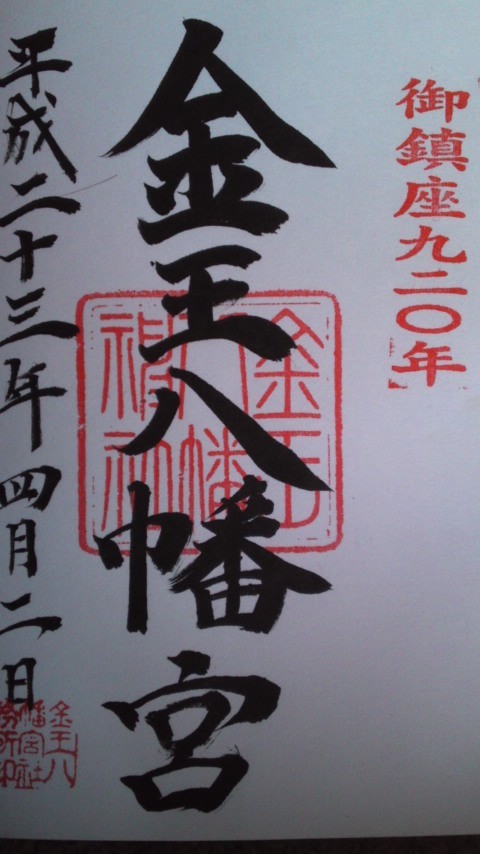 御鎮座九二〇年
金王八幡宮
金王八幡神社
平成二十三年四月二日
金王八
幡宮社
務所印